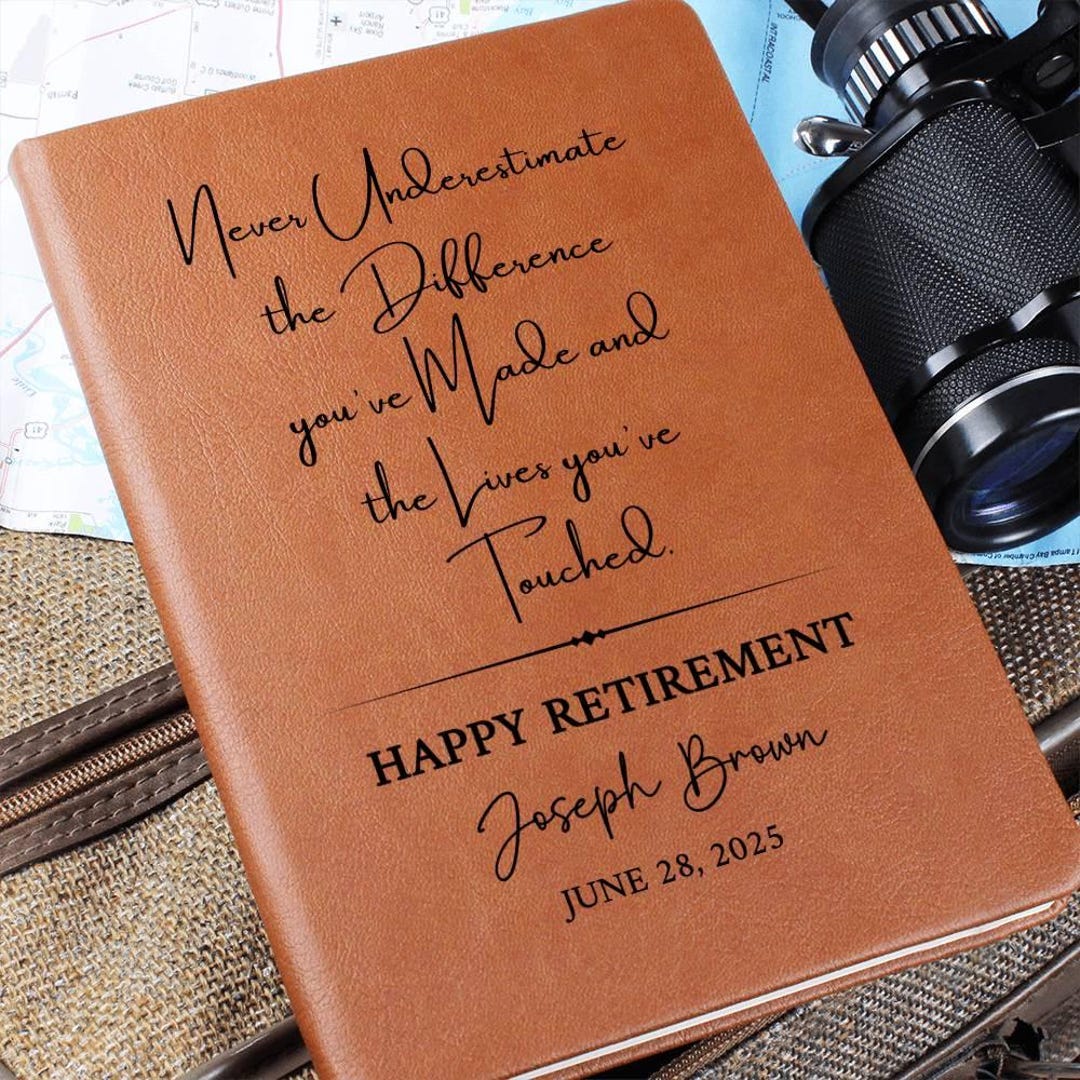 Never Underestimate
the Difference
you've Made and
the Lives you've
Touched.
HAPPY RETIREMENT
Joseph Brown
JUNE 28, 2025
INTRACOASTAL
41
41